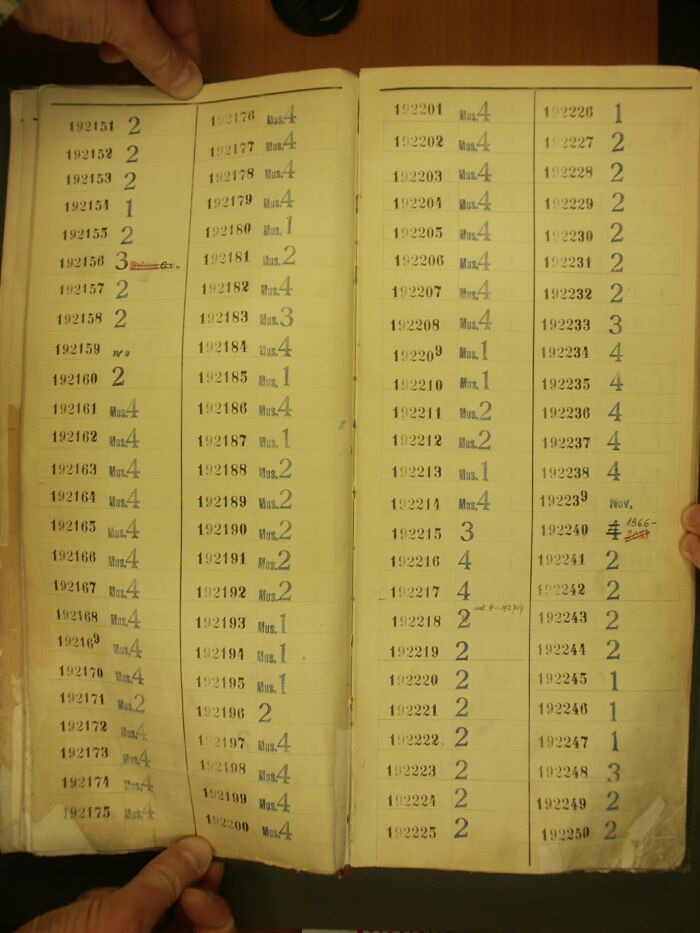 192151 2
192152 2
192153 2
192154 1
192155 2
192156 3
192157 2
192158 2
192159
192160 2
192161 Mus.4
192162 Mus.4
192163 Mus.4
192164 Mus.4
192165 Mus.4
192166 Mus.4
192167 Mus.4
192168 Mus.4
192169 Mus.4
192170 Mus.4
192171 Mus.2
192172 Mus.4
192173 Mus.4
192174 Mus.4
192175 Mus.4
192176 Mus.4
192177 Mus.4
192178 Mus.4
192179 Mus.4
192180 Mus.1
192181 Mus.2
192182 Mus.4
192183 Mus.3
192184 Mus.4
192185 Mus.1
192186 Mus.4
192187 Mus.1
192188 Mus.2
192189 Mus.2
192190 Mus.2
192191 Mus.2
192192 Mus.2
192193 Mus.1
192194 Mus.1
192195 Mus.1
192196 2
192197 Mus.4
192198 Mus.4
192199 Mus.4
192200 Mus.4
192201 Mus.4
192202 Mus.4
192203 Mus.4
192204 Mus.4
192205 Mus.4
192206 Mus.4
192207 Mus.4
192208 Mus.4
192209 Mus.1
192210 Mus.1
192211 Mus.2
192212 Mus.2
192213 Mus.1
192214 Mus.4
192215 3
192216 4
192217 4
192218 2
192219 2
192220 2
192221 2
192222 2
192223 2
192224 2
192225 2
192226 1
192227 2
192228 2
192229 2
192230 2
192231 2
192232 2
192233 3
192234 4
192235 4
192236 4
192237 4
192238 4
192239 Nov.
192240 4 1966-
192241 2
192242 2
192243 2
192244 2
192245 1
192246 1
192247 1
192248 3
192249 2
192250 2